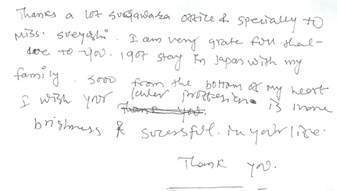 Thanks a lot Sugawara office & specially to
Miss. Sueyoshi. I am very grate full that
due to you. I got stay in Japan with my
family. Sooo from the bottom of my heart
I wish your profession is more
brightness & sucessful. in your life.
Thank you.